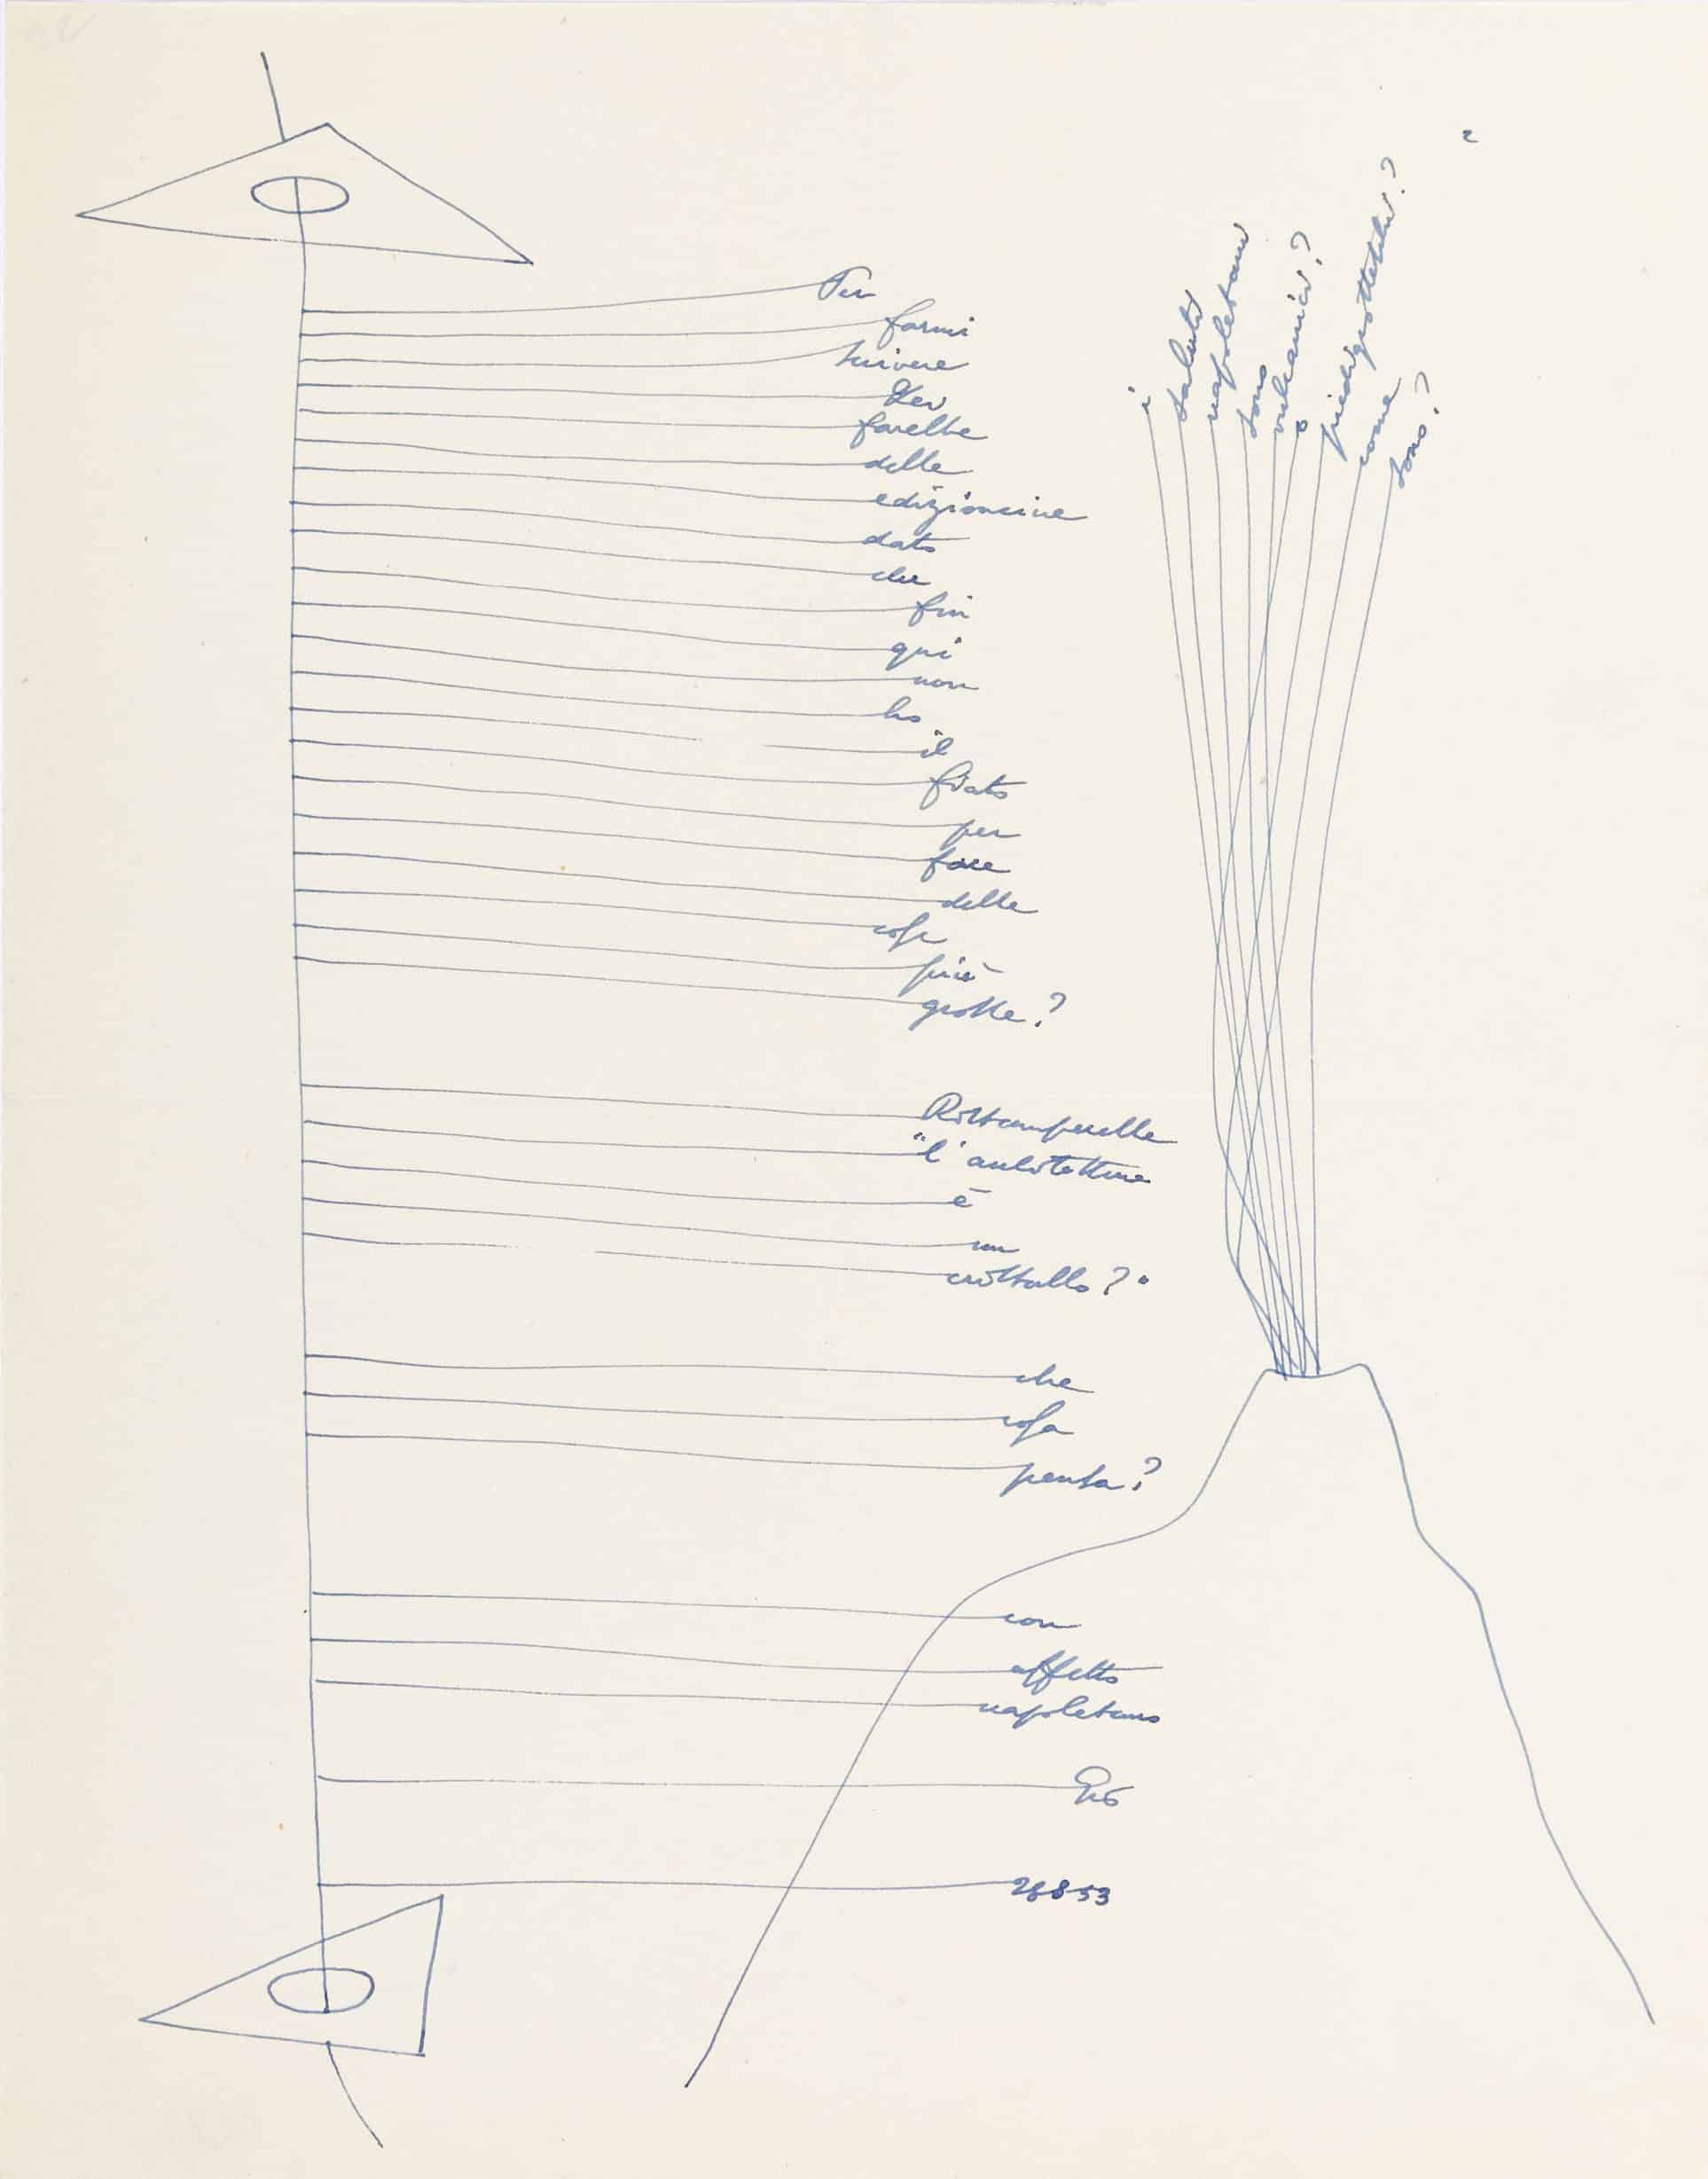 Per
farmi
scrivere
Lei
farebbe
delle
edizioncine
dato
che
fin
qui
non
ho
il
fiato
per
fare
delle
cose
più
grosse?
Ristamperebbe
"l'architettura
è
un
cristallo?"
che
cosa
pensa?
con
affetto
napoletano
Gio
26 8 53
i
saluti
napoletani
sono
vulcanici?
o
piedigrotteschi?
come
sono?